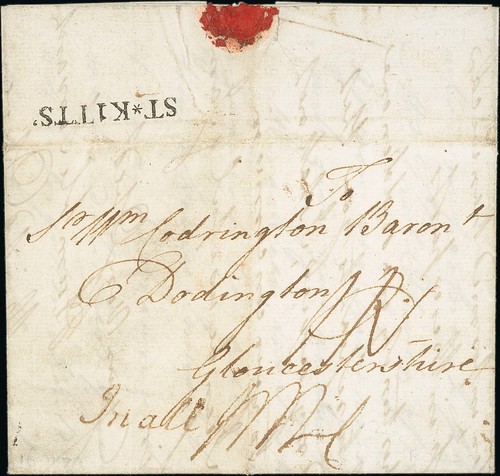 ST*KITTS.
To
Sr. Wm Codrington Baront
Dodington
Gloucestershire
In all